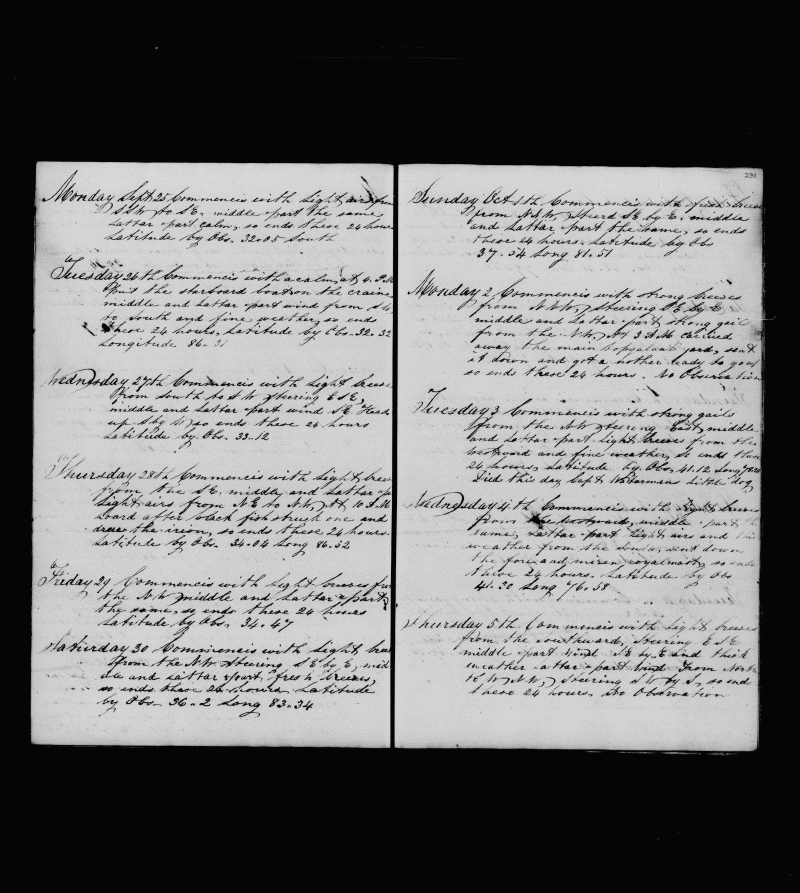 Monday Sept 25 Commencis with light airs from
S.S.W. to S.E. middle part the same
Lattar part calm, so ends these 24 hours
Latitude by Obs. 32.05 South
Tuesday 26th Commencis with a calm, at 4. P.M
Put the starboard boat on the craine
middle and Lattar part wind from
to South and fine weather, so ends
these 24 hours, Latitude by Obs. 32.32
Longitude 86.31
Wednesday 27th Commencis with Light breese
from South to S.W. Steering E.S.E,
middle and Lattar part wind S.E. Head
up S by W, so ends these 24 hours
Latitude by Obs. 33.12
Thursday 28th Commencis with Light breeses
from the S.E. middle, and Lattar
Light airs from N.E. to N.W, At 10 A.M
Loard after black fish struck one and
drew the irion, so ends these 24 hours.
Latitude by Obs. 34.04 Long 86.52
Friday 29 Commencis with Light breeses from
the N.W. middle and Lattar part
thy same, so ends these 24 hours
Latitude by Obs. 34.47
Saturday 30 Commencis with Light breeses
from the N.W. Steering S.E by E, mid
dle and Lattar part, fresh breeses,
so ends these 24 hours Latitude
by Obs. 36.2 Long 83.34
231
Sunday Oct 1th Commencis with fresh breeses
from N.N.W. Steerd S.E by E. middle
and Lattar part the same, so ends
these 24 hours. Latitude by Obs
37.54 Long 81.51
Monday 2 Commencis with strong breeses
from N.N.W, Steering S.E by E,
middle and Lattar part strong gail
from the N.W, At 3 A.M carried
away the main topgalant yard, sent
it down and got a nother ready to go up
so ends these 24 hours. No Observation
Tuesday 3 Commencis with strong gails
from the N.W Steering East, middle
and Lattar part Light breeses from the
westward and fine weather, so ends these
24 hours, Latitude by Obs, 41.12 Long
Died this day Capt Little dog
Wednesday 4th Commencis with Light breeses
from the westward, middle part the
same, Lattar part Light airs and
weather from the South, sent down
the fore and mizen royalmast, so ends
these 24 hours. Latitude by Obs
41.20 Long 76.58
Thursday 5th Commencis with Light breeses
from the southward, Steering E.S.E
middle part wind S.E. by E and thick
weather attar part wind from North
to W.N.W, Steering S.W by S, so end
these 24 hours. No Observation